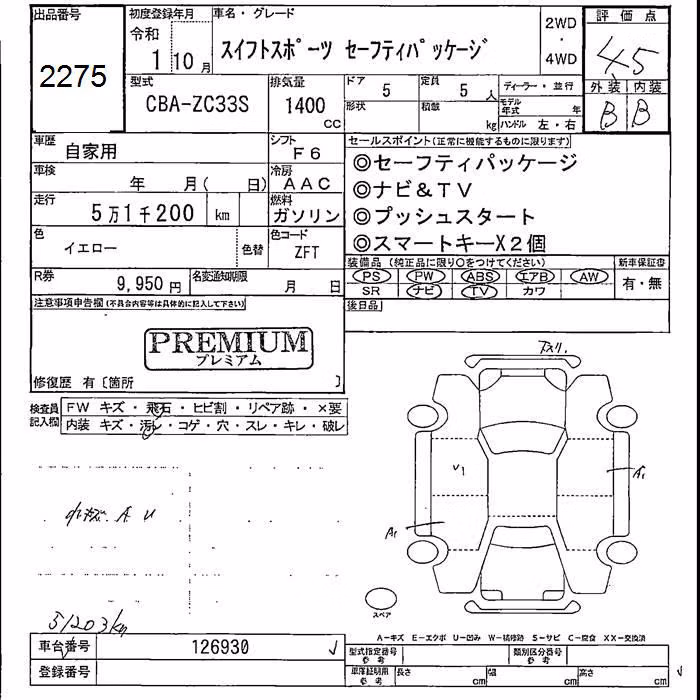 出品番号
2275
初度登録年月
令和
1 10 月
車名・グレード
スイフトスポーツ セーフティパッケージ
2WD
・
4WD
評価点
4.5
外装 内装
B B
型式
CBA-ZC33S
排気量
1400
cc
ドア
5
形状
定員
5 人
積載
kg
ディーラー・並行
モデル年式 年
ハンドル 左・右
車歴
自家用
シフト
F6
車検
年 月( 日)
冷房
AAC
走行
5万1千200 km
燃料
ガソリン
色
イエロー
色替
色コード
ZFT
R券
9,950 円
名変通知期限
月 日
セールスポイント(正常に機能するものに限ります)
◎セーフティパッケージ
◎ナビ&TV
◎プッシュスタート
◎スマートキーX2個
装備品 (純正品に限り○をつけてください)
PS PW ABS エアB AW
SR ナビ TV カワ
新車保証書
有・無
後日品
注意事項申告欄(不具合内容等は具体的に記入して下さい)
PREMIUM
プレミアム
修復歴 有〔箇所 〕
検査員記入欄
FW キズ・飛石・ヒビ割・リペア跡・×要
内装 キズ・汚レ・コゲ・穴・スレ・キレ・破レ
小キズ. A U
51203km
U1
A1
A1
スペア
A-キズ E-エクボ U-凹み W-補修跡 S-サビ C-腐食 XX-交換済
車台番号
126930
登録番号
型式指定番号
参考
類別区分番号
参考
車庫証明用
参考
長さ cm
幅 cm
高さ cm